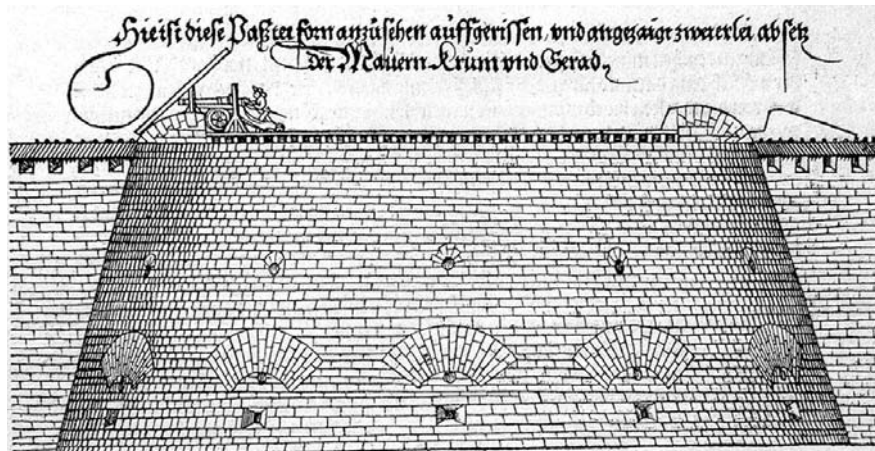 Hie ist diese Pastei forn anzusehen auffgerissen, vnd angezaigt zweierlei absetz
der Mauern Krum vnd Gerad.